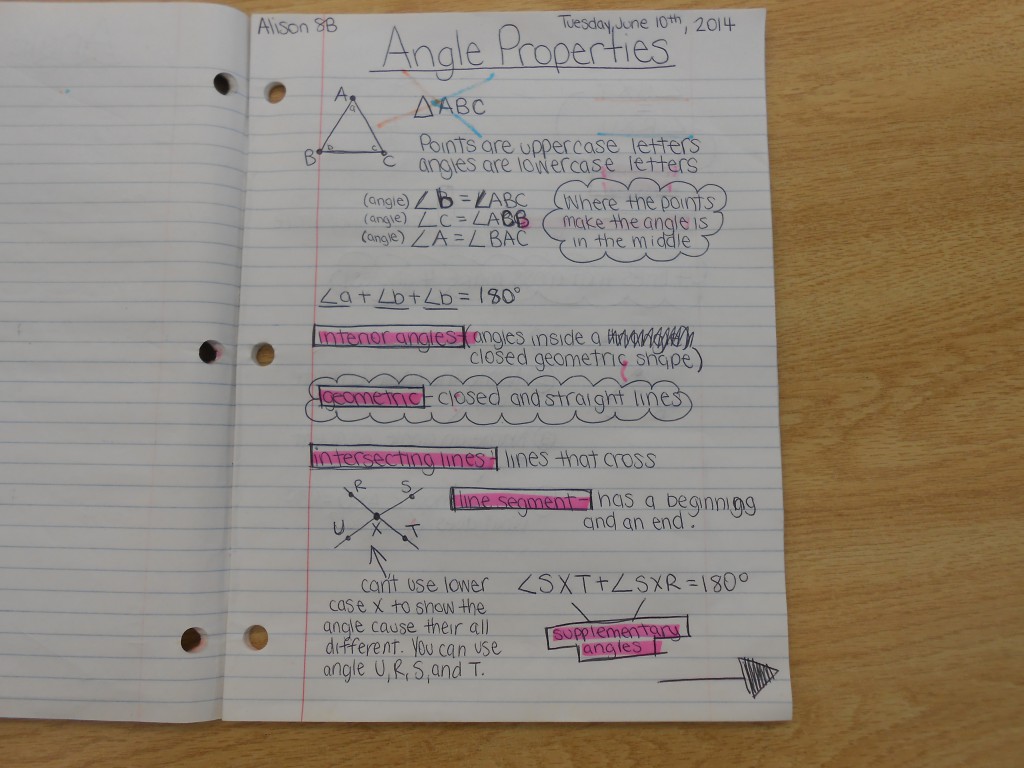 Alison 8B
Tuesday, June 10th, 2014
Angle Properties
A
a
B b c C
△ABC
Points are uppercase letters
angles are lowercase letters
(angle) ∠B = ∠ABC
(angle) ∠C = ∠ACB
(angle) ∠A = ∠BAC
Where the points
make the angle is
in the middle
∠a + ∠b + ∠b = 180°
interior angles - (angles inside a
closed geometric shape)
geometric - closed and straight lines
intersecting lines - lines that cross
R S
U X T
line segment - has a beginning
and an end.
can't use lower
case x to show the
angle cause their all
different. You can use
angle U, R, S, and T.
∠SXT + ∠SXR = 180°
supplementary
angles